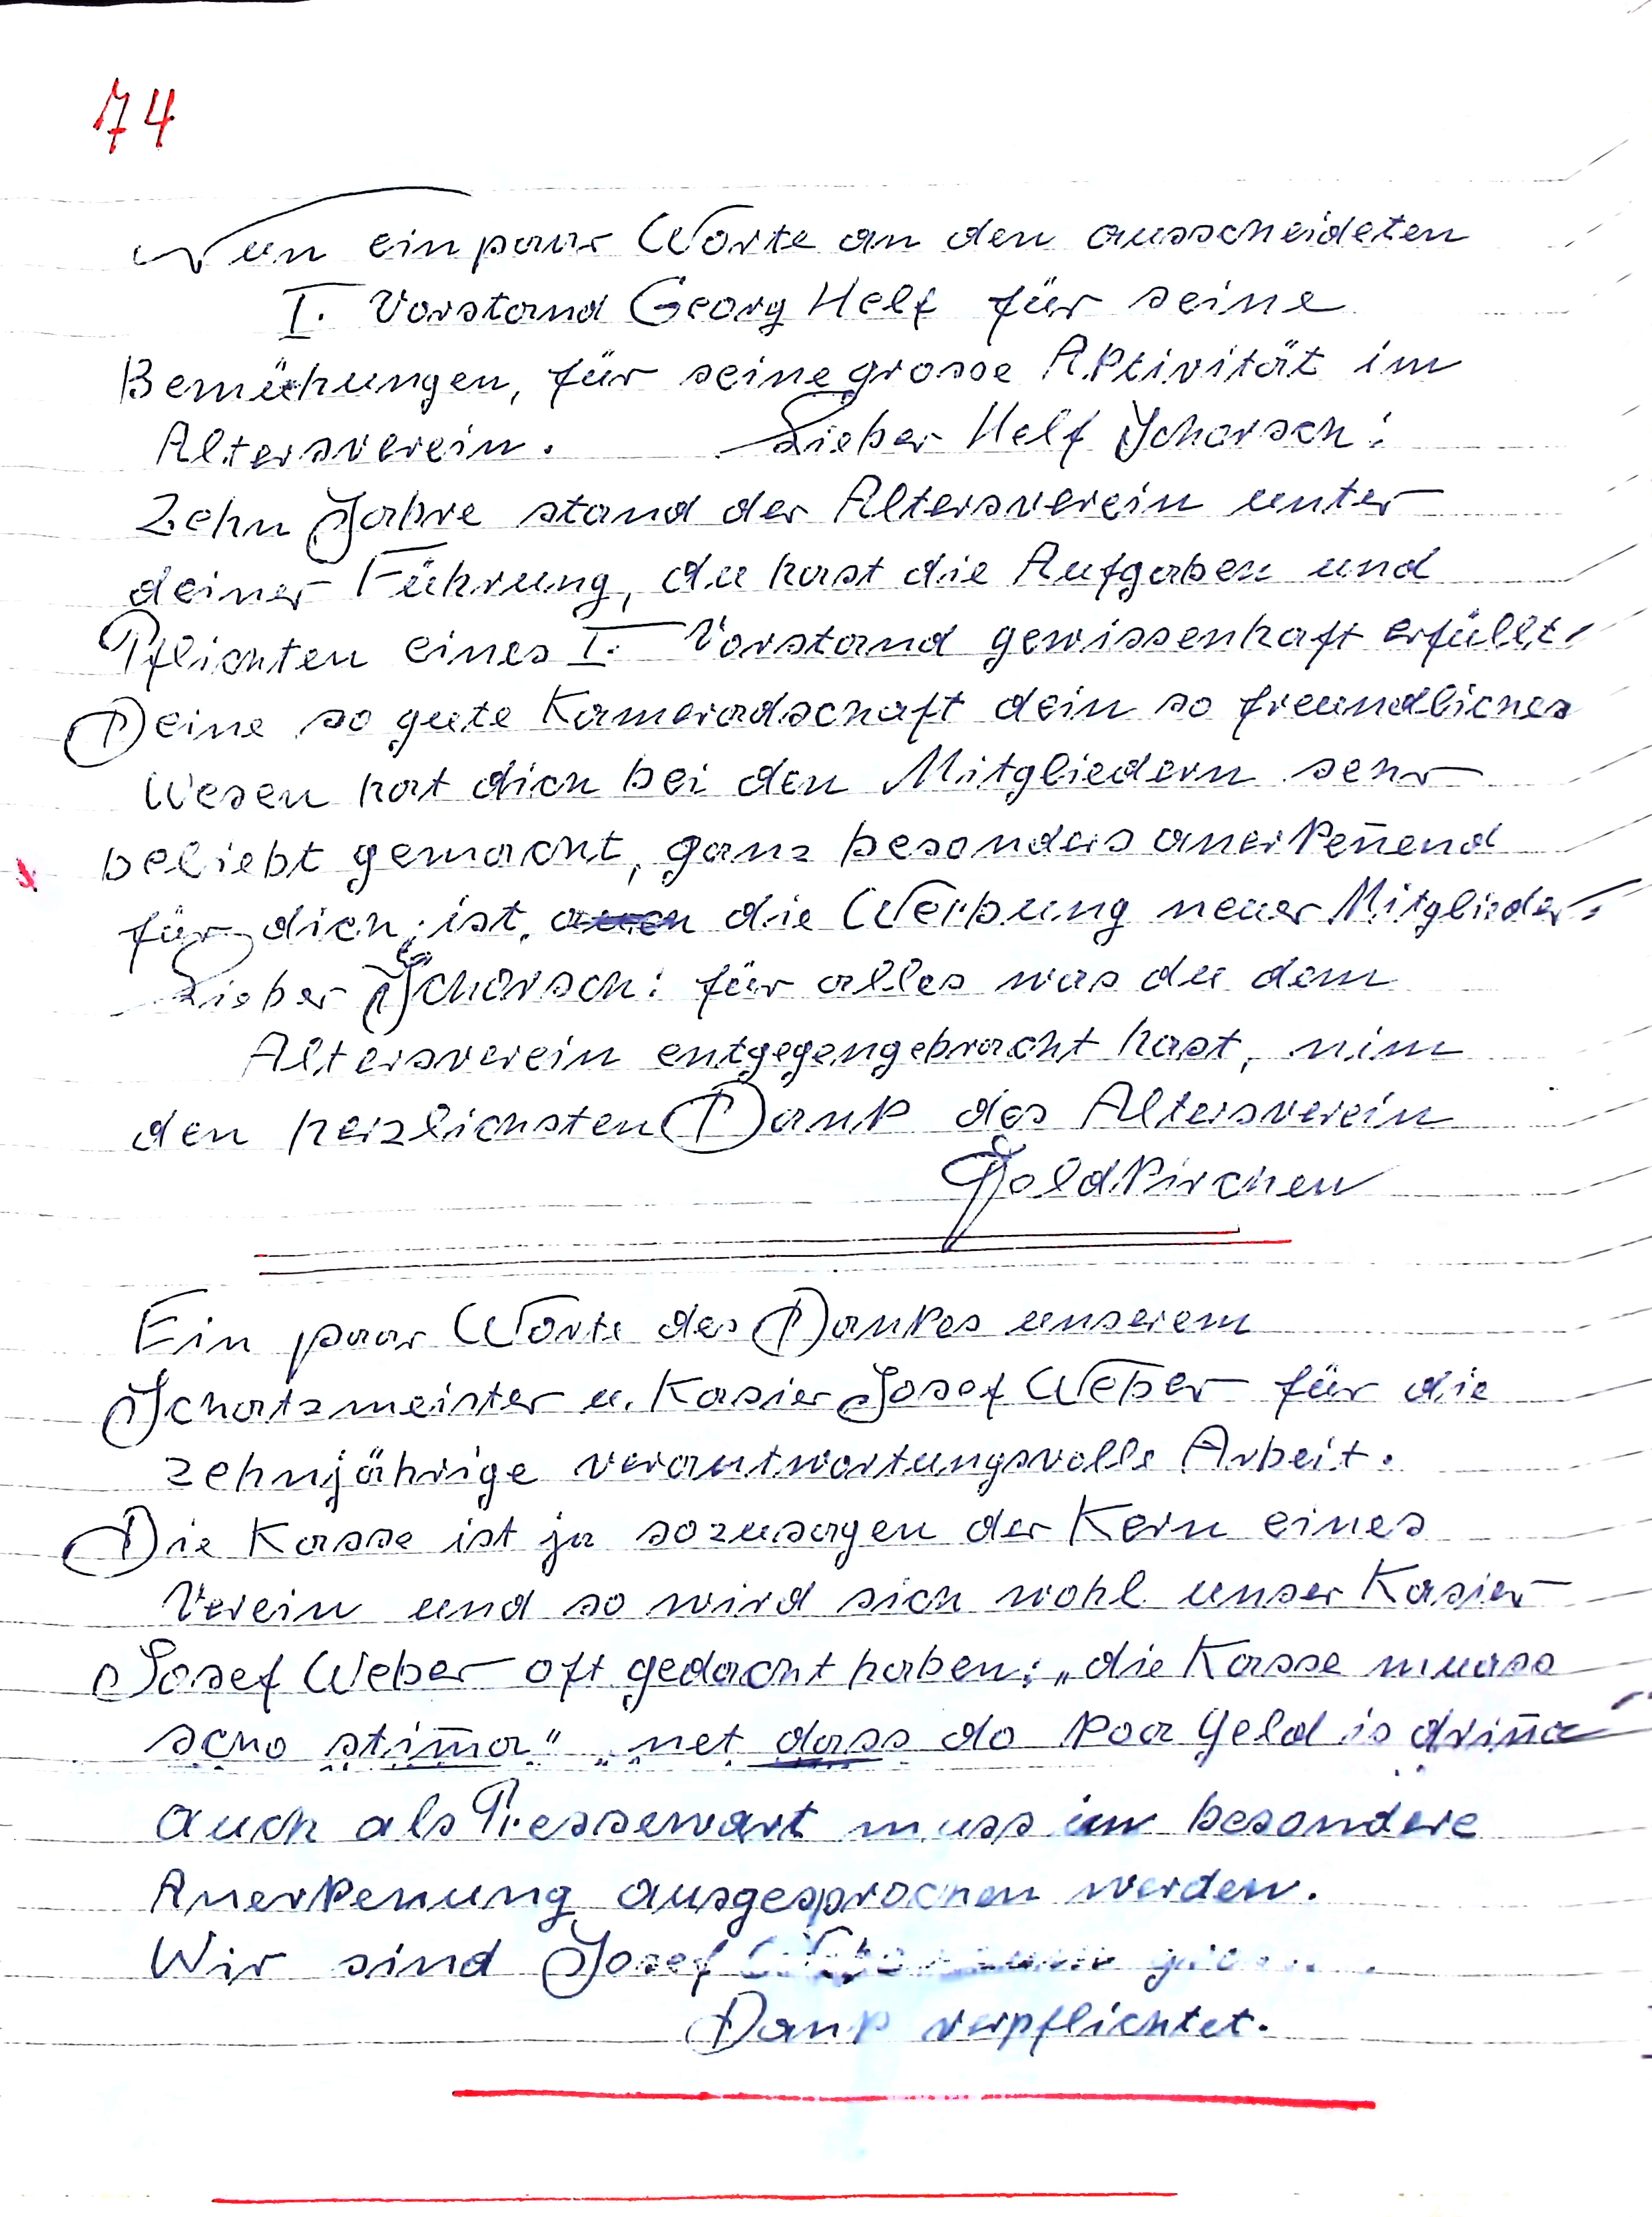 74
Nun ein paar Worte an den ausscheideten
I. Vorstand Georg Helf für seine
Bemühungen, für seine grosse Aktivität im
Altersverein. Lieber Helf Schorsch:
Zehn Jahre stand der Altersverein unter
deiner Führung, du hast die Aufgaben und
Pflichten eines I. Vorstand gewissenhaft erfüllt.
Deine so gute Kameradschaft dein so freundliches
Wesen hat dich bei den Mitgliedern sehr
beliebt gemacht, ganz besonders anerken̄end
für dich, ist, die Werbung neuer Mitglieder.
Lieber Schorsch: für alles was du dem
Altersverein entgegengebracht hast, nim
den herzlichsten Dank des Altersverein
Goldkirchen
Ein paar Worte des Dankes unserem
Schatzmeister u. Kasier Josef Weber für die
zehnjährige verantwortungsvolle Arbeit.
Die Kasse ist ja sozusagen der Kern eines
Verein und so wird sich wohl unser Kasier
Josef Weber oft gedacht haben: „die Kasse muass
scho stim̄a" „net dass do koa Geld is drin̄a
auch als Pressewart muss im besondere
Anerkenung ausgesprochen werden.
Wir sind Josef
Dank verpflichtet.